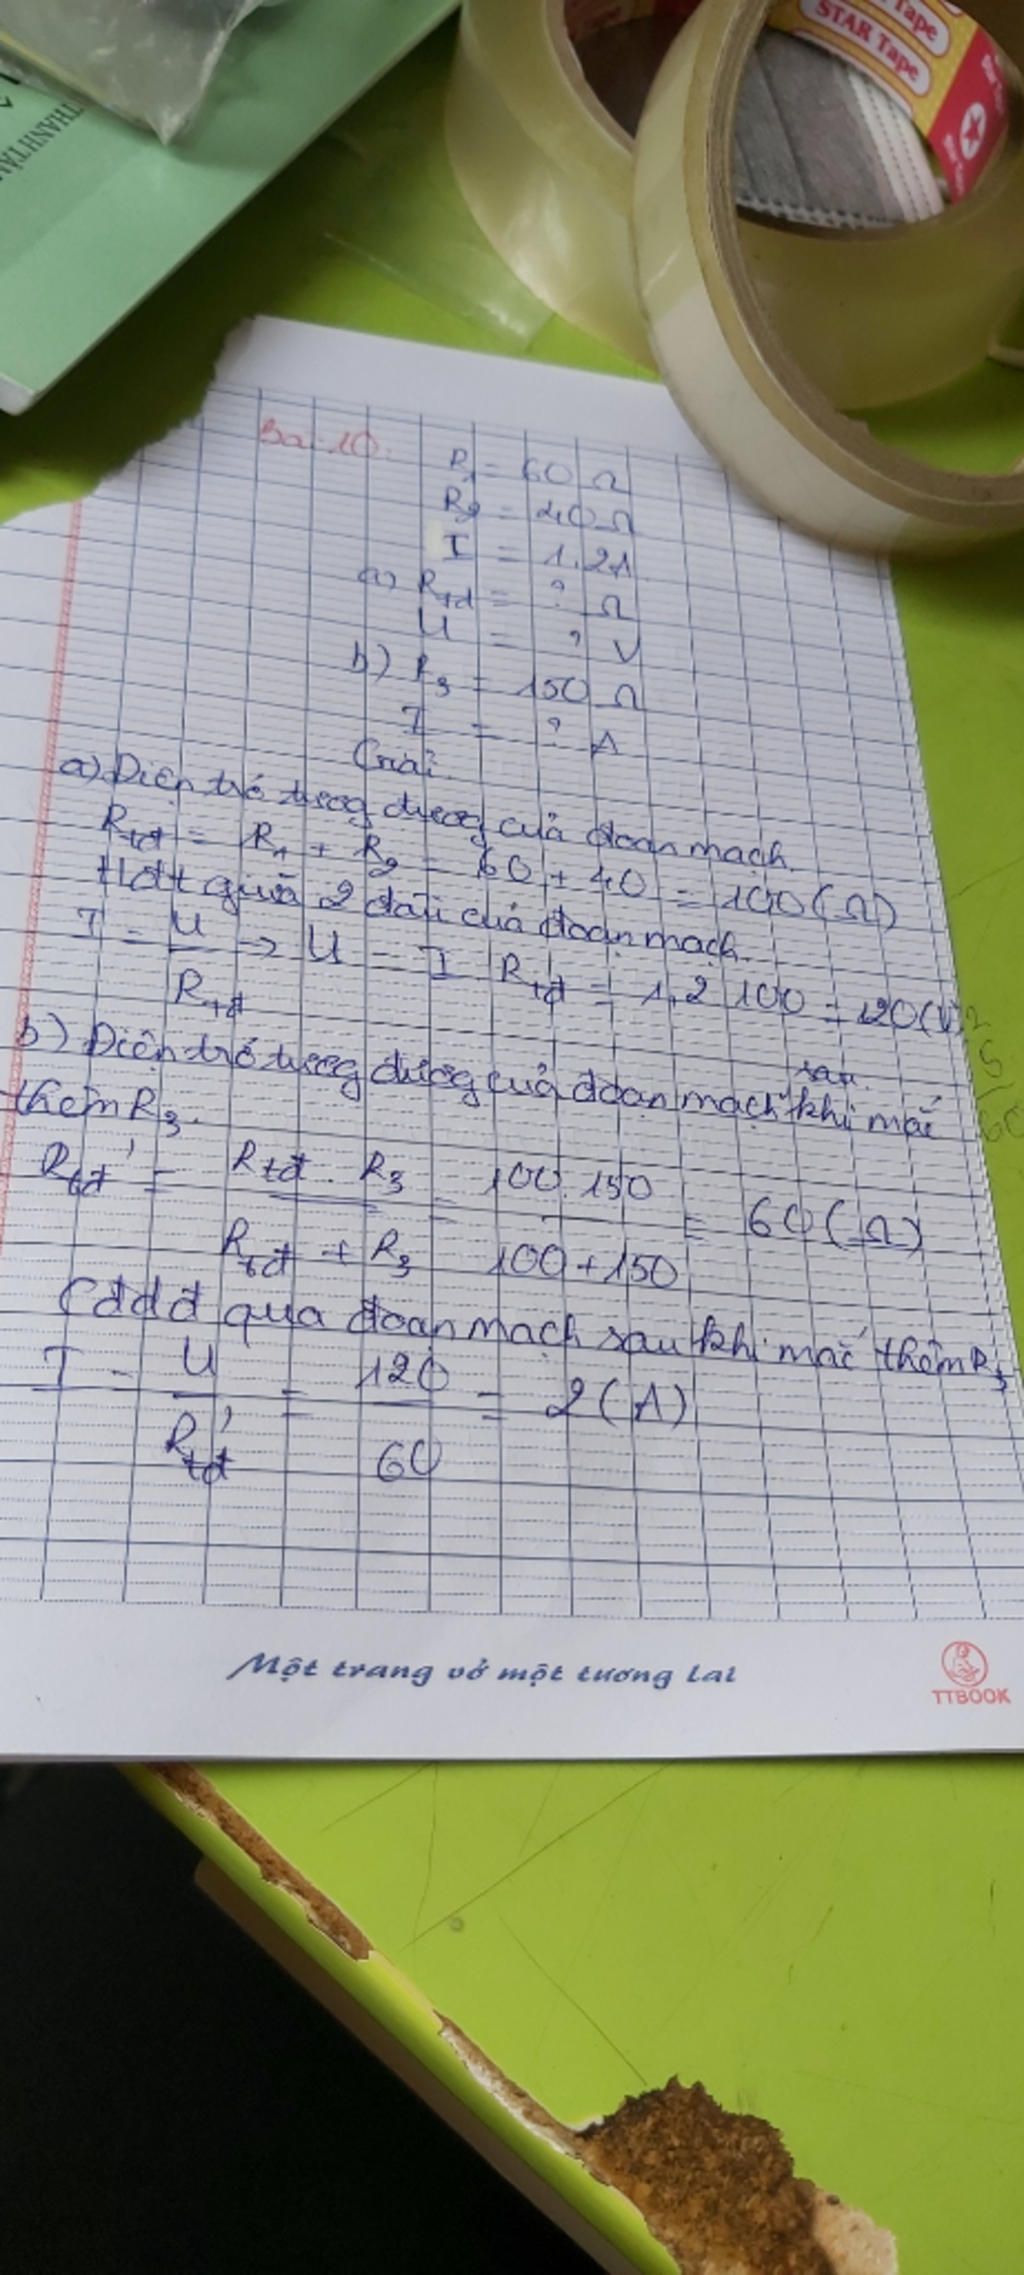 Tape
STAR Tape
THANH TÂ
Bài 10.
R₁ = 60 Ω
R₂ = 40 Ω
I = 1,2A
a) Rtđ = ? Ω
U = ? V
b) R₃ = 150 Ω
I = ? A
Giải
a) Điện trở tương đương của đoạn mạch.
Rtđ = R₁ + R₂ = 60 + 40 = 100 (Ω)
Hđt giữa 2 đầu của đoạn mạch.
I = U / Rtđ → U = I . Rtđ = 1,2 . 100 = 120 (V)
b) Điện trở tương đương của đoạn mạch sau khi mắc
thêm R₃.
Rtđ' = Rtđ . R₃ / Rtđ + R₃ = 100 . 150 / 100 + 150 = 60 (Ω)
Cđdđ qua đoạn mạch sau khi mắc thêm R₃
I = U / Rtđ' = 120 / 60 = 2 (A)
Một trang vở một tương lai
TTBOOK